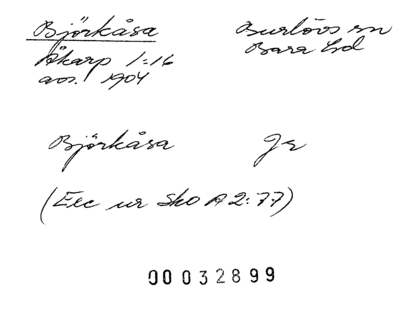 Björkåsa
Burlövs sn
Åkarp 1:16
Bara hd
avs. 1904
Björkåsa
Jr
(Exc ur SkO A2:77)
00032899